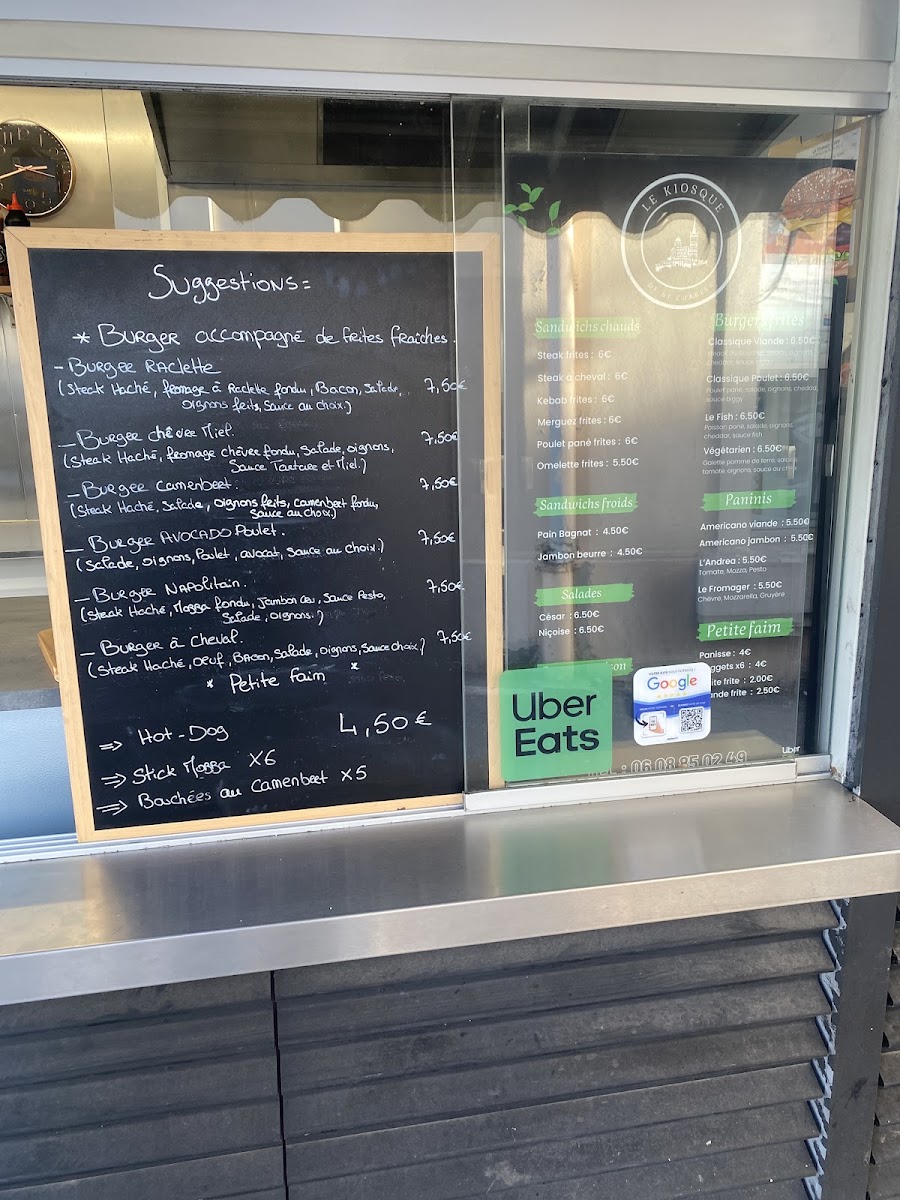 Suggestions =
* Burger accompagné de frites fraîches.
- Burger Raclette
(Steak Haché, fromage à Raclette fondu, Bacon, Salade, 7,50€
oignons frits, Sauce au choix.)
_ Burger chèvre Miel. 7,50€
(Steak Haché, fromage chèvre fondu, Salade, oignons,
Sauce Tartare et Miel.)
_ Burger Camembert. 7,50€
(Steak Haché, Salade, oignons frits, camembert fondu,
Sauce au choix)
_ Burger AVOCADO Poulet. 7,50€
(Salade, oignons, Poulet, avocat, Sauce au choix.)
_ Burger Napolitain. 7,50€
(Steak Haché, Mozza fondu, Jambon cru, Sauce Pesto,
Salade, oignons.)
_ Burger à Cheval. 7,50€
(Steak Haché, Oeuf, Bacon, Salade, Oignons, Sauce choix)
* Petite faim *
⇒ Hot-Dog 4,50€
⇒ Stick Mozza X6
⇒ Bouchées au Camembert X5
LE KIOSQUE
Sandwichs chauds
Steak frites : 6€
Steak à cheval : 6€
Kebab frites : 6€
Merguez frites : 6€
Poulet pané frites : 6€
Omelette frites : 5.50€
Sandwichs froids
Pain Bagnat : 4.50€
Jambon beurre : 4.50€
Salades
César : 6.50€
Niçoise : 6.50€
Burgers frites
Classique Viande : 6.50€
Classique Poulet : 6.50€
Poulet pané, salade, oignons, cheddar,
sauce biggy
Le Fish : 6.50€
Poisson pané, salade, oignons,
cheddar, sauce fish
Végétarien : 6.50€
Galette pomme de terre, salade,
tomate, oignons, sauce au choix
Paninis
Americano viande : 5.50€
Americano jambon : 5.50€
L'Andrea : 5.50€
Tomate, Mozza, Pesto
Le Fromager : 5.50€
Chèvre, Mozzarella, Gruyère
Petite faim
Panisse : 4€
uggets x6 : 4€
ite frite : 2.00€
ande frite : 2.50€
Uber
Eats
Google
: 06 08 85 02 49
Uber